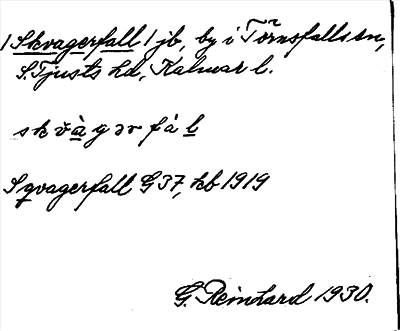 /Skvagerfall/ jb, by i Törnsfalls sn,
S. Tjusts hd, Kalmar l.
skv̌àgərfàl
Sqvagerfall G37, kb 1919
G. Reinhard 1930.